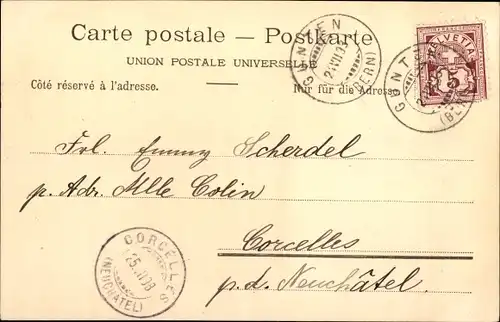 Carte postale – Postkarte
UNION POSTALE UNIVERSELLE
Côté réservé à l'adresse.
Nur für die Adresse.
GUNTEN
(BERN)
HELVETIA
5
GUNT
(BERN
Frl. Emmy Scherdel
p. Adr. Mlle Colin
Corcelles
p.d. Neuchâtel.
CORCELLES
(NEUCHÂTEL)